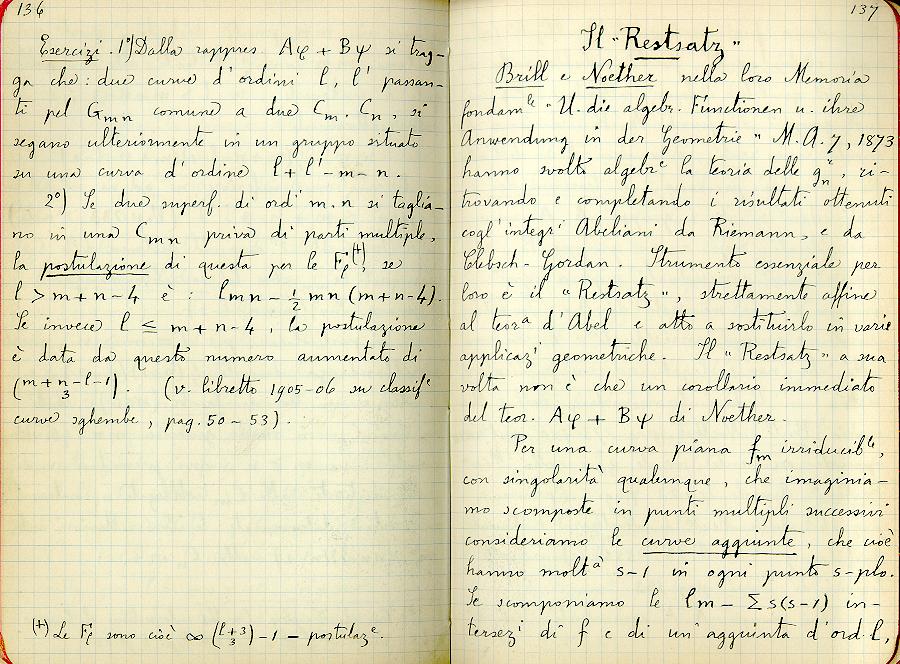 136
Esercizi. 1°) Dalla rappres. Aφ + Bψ si trag-
ga che: due curve d'ordini l, l' passan-
ti pel Gmn comune a due Cm, Cn, si
segano ulteriormente in un gruppo situato
su una curva d'ordine l + l' - m - n.
2°) Se due superf. di ord.i m, n si taglia-
no in una Cmn priva di parti multiple,
la postulazione di questa per le Fl (+), se
l > m + n - 4 è: lmn - ½ mn (m + n - 4).
Se invece l ≤ m + n - 4, la postulazione
è data da questo numero aumentato di
(m+n-l-1 / 3). (v. libretto 1905-06 su classif.e
curve sghembe, pag. 50-53).
(+) Le Fl sono cioè ∞ (l+3 / 3) - 1 - postulaz.e
137
Il "Restsatz"
Brill e Noether nella loro Memoria
fondam.le "U. die algebr. Functionen u. ihre
Anwendung in der Geometrie" M. A. 7, 1873
hanno svolto algebr.e la teoria delle g^r_n, ri-
trovando e completando i risultati ottenuti
cogl'integr.i Abeliani da Riemann, e da
Clebsch-Gordan. Strumento essenziale per
loro è il "Restsatz", strettamente affine
al teor.a d'Abel e atto a sostituirlo in varie
applicaz.i geometriche. Il "Restsatz" a sua
volta non è che un corollario immediato
del teor. Aφ + Bψ di Noether.
Per una curva piana fm irriducib.le,
con singolarità qualunque, che imaginia-
mo scomposte in punti multipli successivi
consideriamo le curve aggiunte, che cioè
hanno molt.à s-1 in ogni punto s-plo.
Se scomponiamo le lm - Σ s(s-1) in-
tersez.i di f e di un'aggiunta d'ord. l,